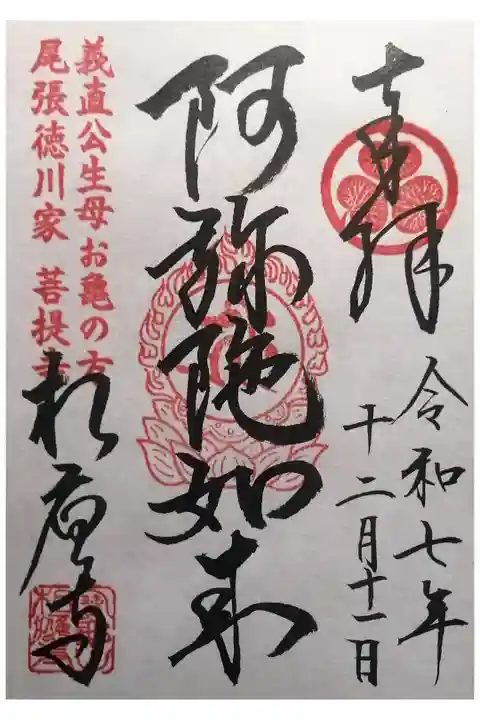 奉拝
令和七年
十二月十一日
阿弥陀如来
義直公生母お亀の方
尾張徳川家 菩提寺
相應寺